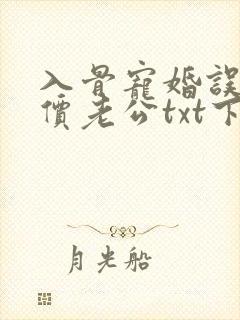 入骨寵婚誤
價老公txt下
月光船